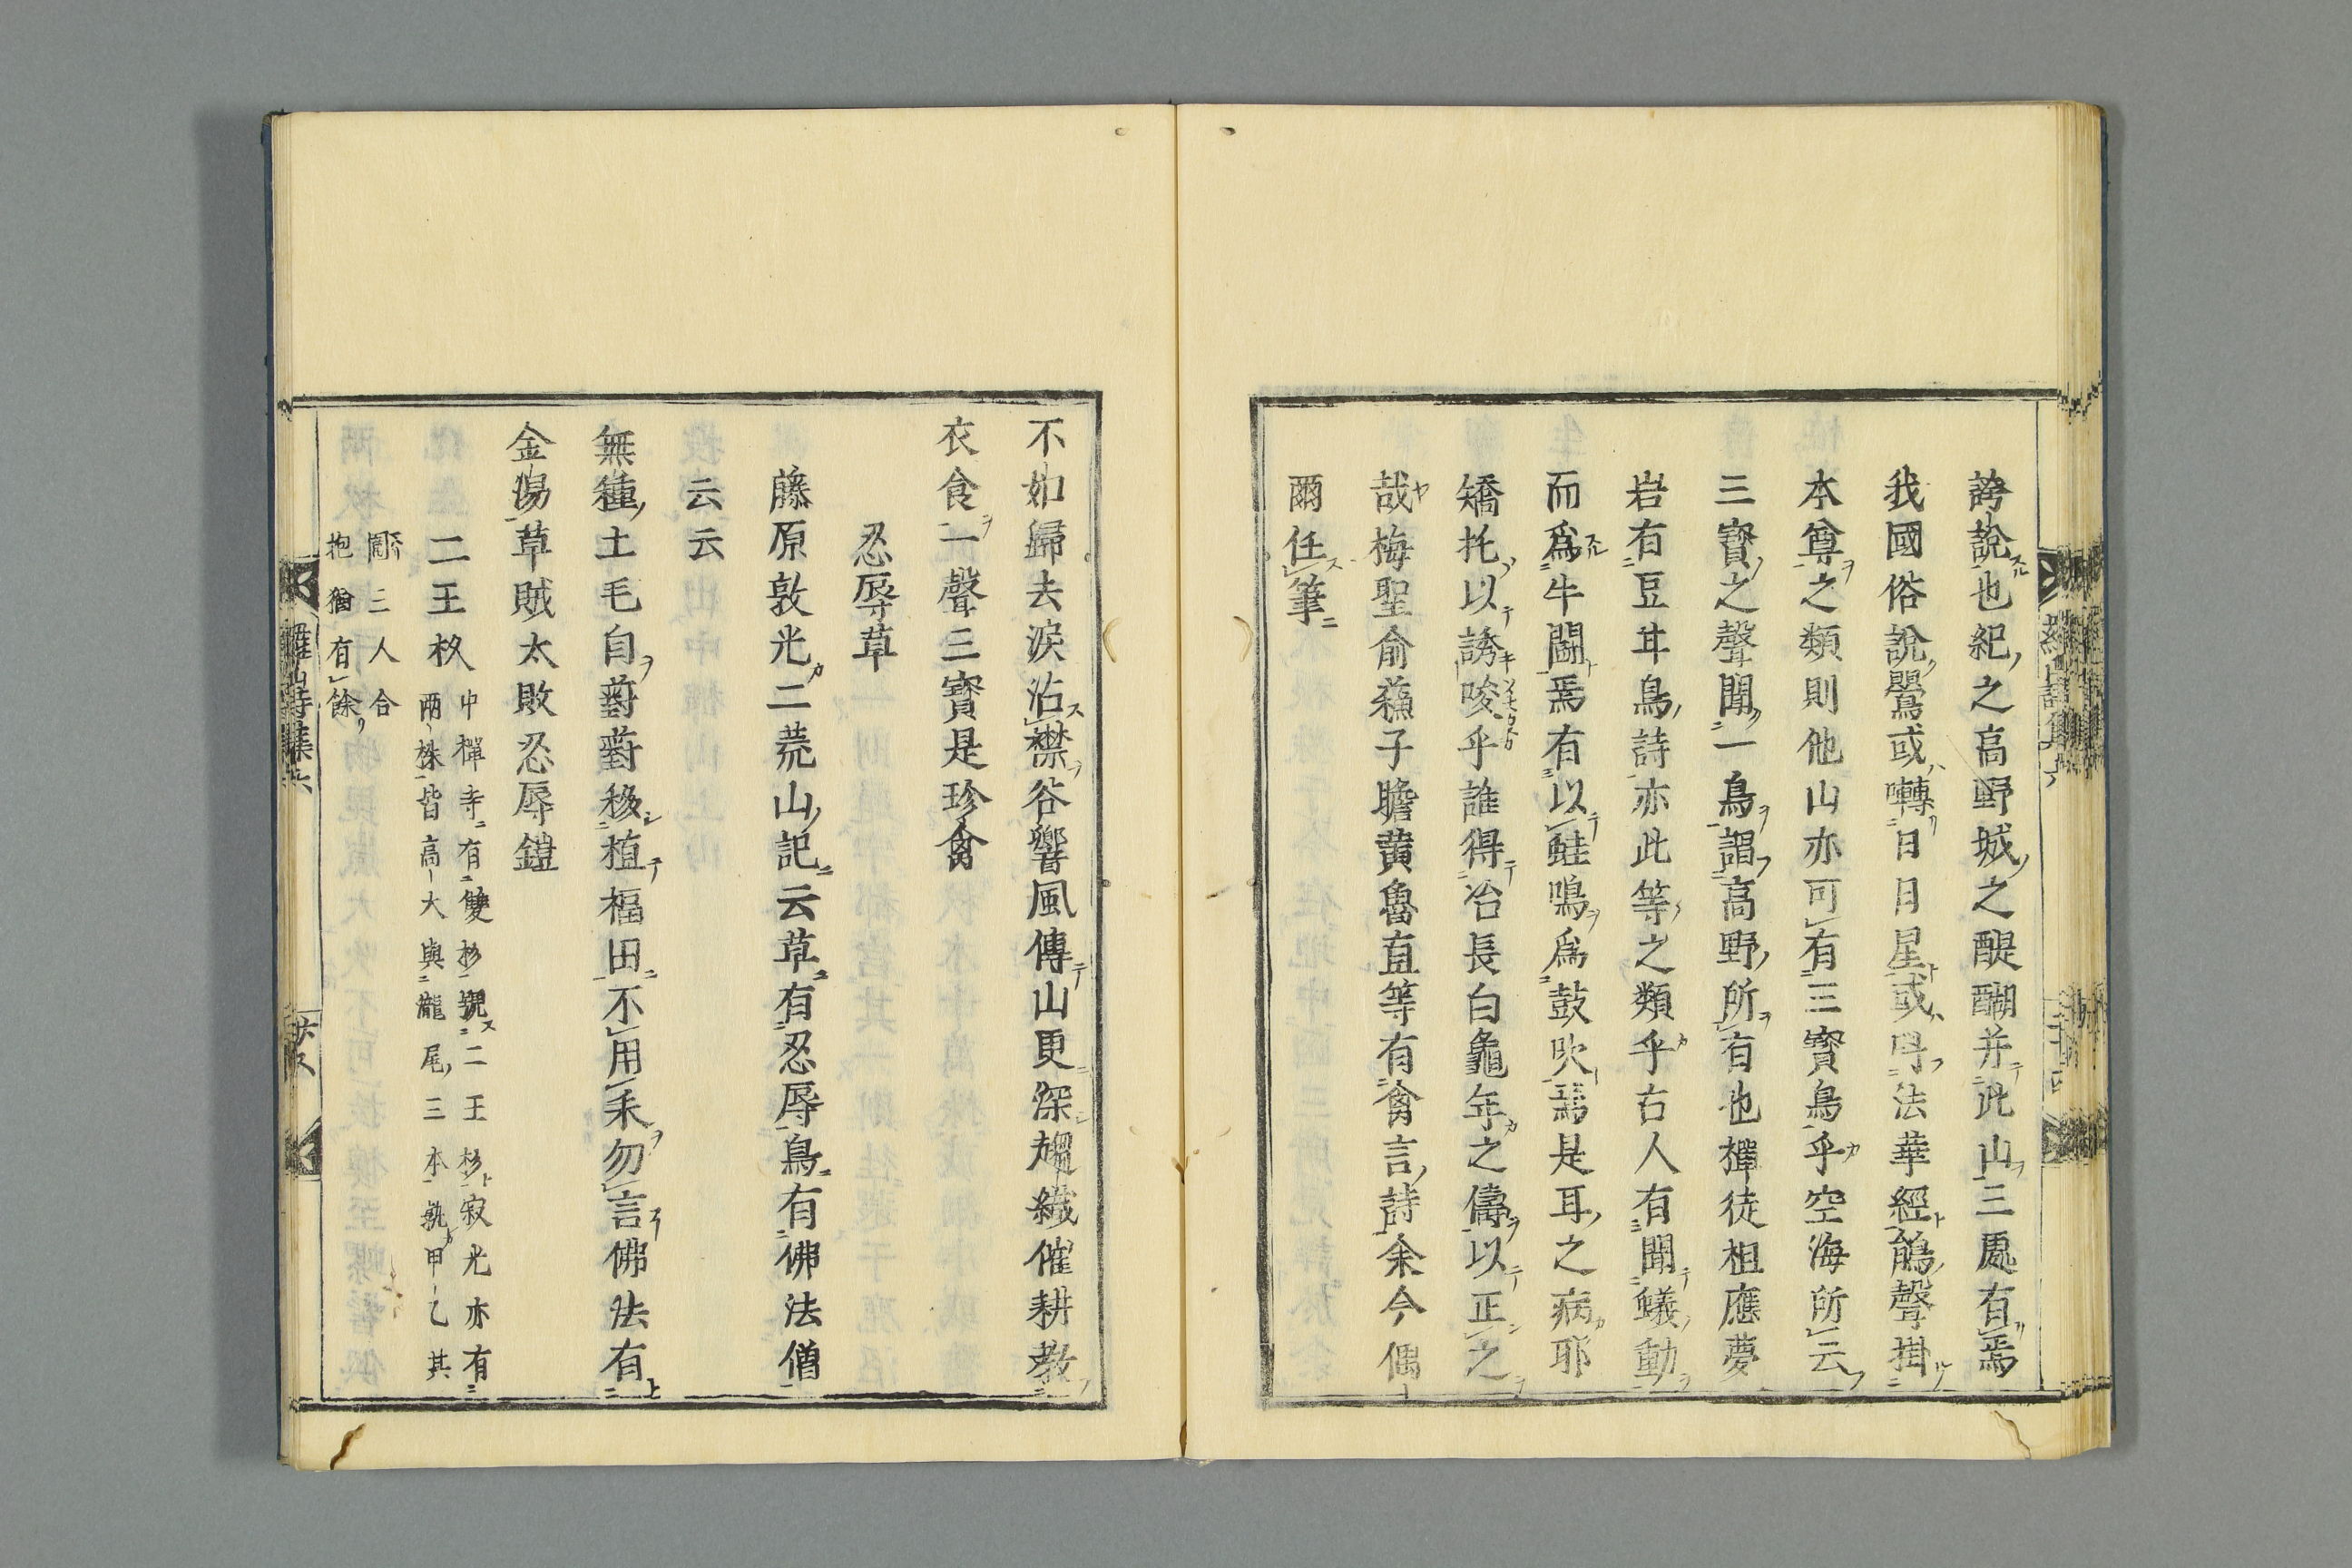 誇說也紀之高野城之醍醐并此山三處有焉
我國俗說鸎或囀日月星或呼法華經鵑聲掛
本尊之類則他山亦可有三寳鳥乎空海所云
三寳之聲聞一鳥謂高野所有也檡徒祖應夢
岩有豆丼鳥詩亦此等之類乎右人有聞蟻動
而爲牛鬪焉有以鮭鳴爲鼓吹焉是耳之病耶
矯托以誘唆乎誰得冶長白龜年之儔以正之
哉梅聖俞蘓子瞻黄魯直等有禽言詩余今偶
爾任筆
不如歸去淚沾襟谷響風傳山更深趣織催耕教
衣食一聲三寳是珍禽
忍辱草
藤原敦光二荒山記云草有忍辱鳥有佛法僧
云云
無種土毛自蒭蒭移植福田不用耒勿言佛法有
金湯草賊太敗忍辱鎧
二王杦
中禅寺有雙杉號二王杉寂光亦有
兩株皆高大與龍尾三本孰甲乙其
圍三人合
抱猶有餘